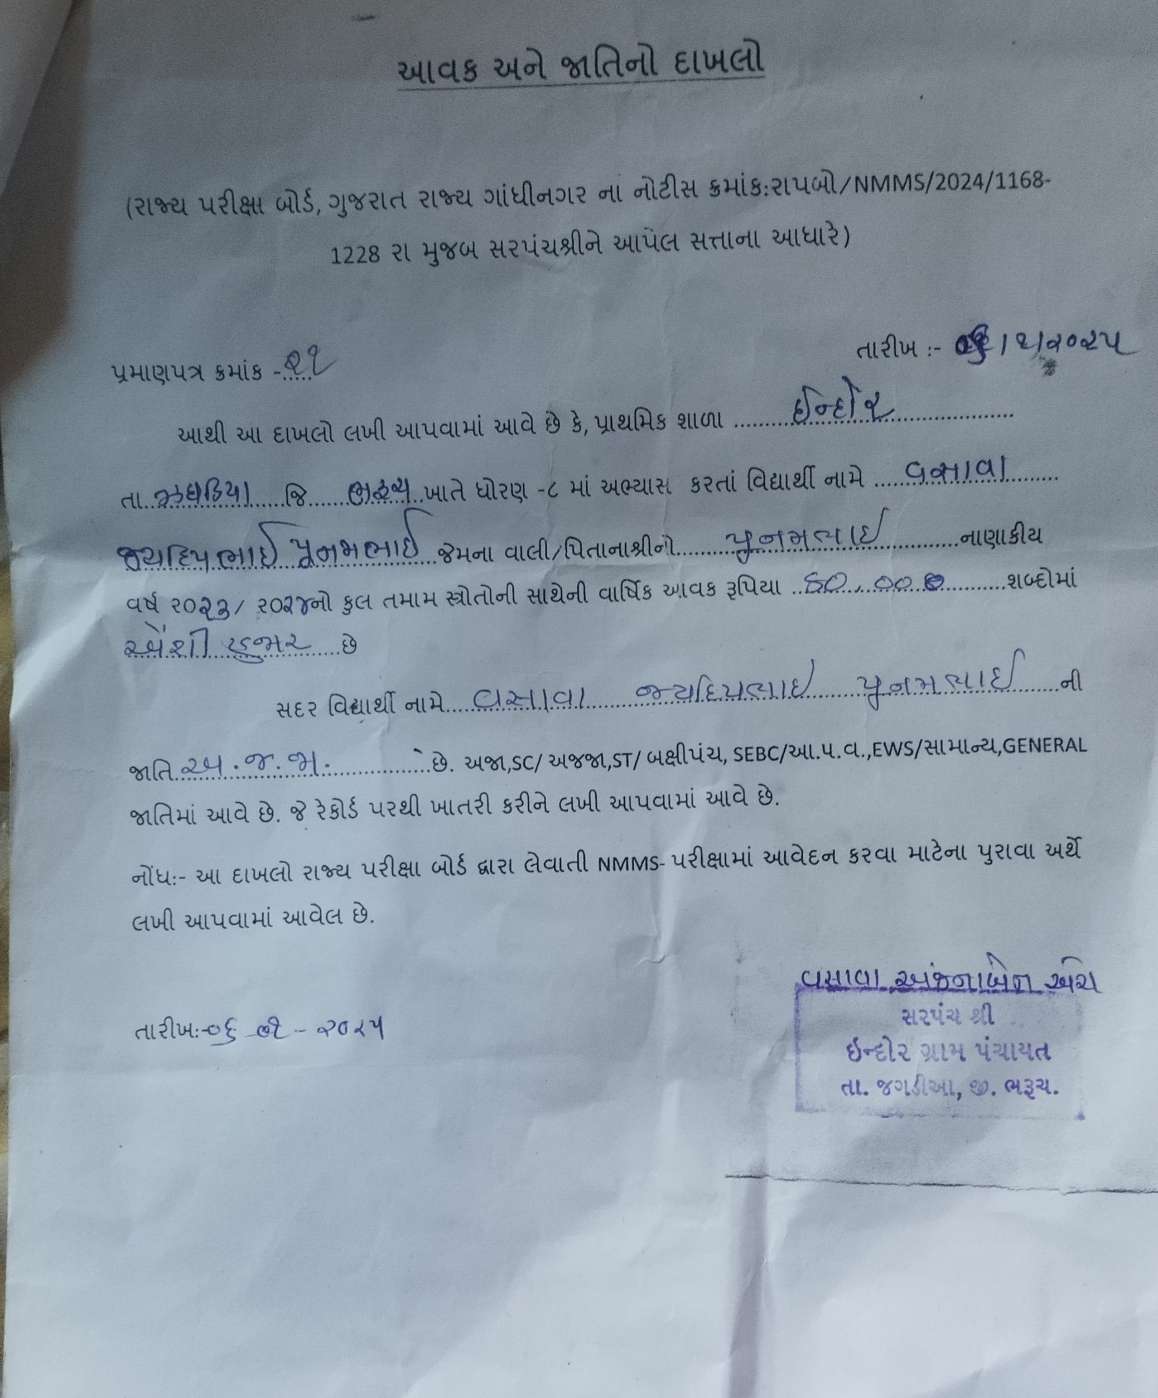 આવક અને જાતિનો દાખલો
(રાજ્ય પરીક્ષા બોર્ડ, ગુજરાત રાજ્ય ગાંધીનગર ના નોટીસ ક્રમાંક:રાપબો/NMMS/2024/1168-
1228 રા મુજબ સરપંચશ્રીને આપેલ સત્તાના આધારે)
તારીખ :- /૨૦૨૫
પ્રમાણપત્ર ક્રમાંક -૨૧
આથી આ દાખલો લખી આપવામાં આવે છે કે, પ્રાથમિક શાળા ઈન્દોર
તા. ઝઘડિયા જિ ભરૂચ ખાતે ધોરણ -૮ માં અભ્યાસ કરતાં વિદ્યાર્થી નામે વસાવા
જયદિપભાઈ પૂનમભાઈ જેમના વાલી/પિતાનાશ્રીનો પુનમભાઈ નાણાકીય
વર્ષ ૨૦૨૩/ ૨૦૨૪નો કુલ તમામ સ્ત્રોતોની સાથેની વાર્ષિક આવક રૂપિયા ૮૦,૦૦૦ શબ્દોમાં
એંશી હજાર છે
સદર વિદ્યાર્થી નામે વસાવા જયદિપભાઈ પુનમભાઈ ની
જાતિ અ.જ.જા. છે. અજા,SC/ અજજા,ST/ બક્ષીપંચ, SEBC/આ.પ.વ.,EWS/સામાન્ય,GENERAL
જાતિમાં આવે છે. જે રેકોર્ડ પરથી ખાતરી કરીને લખી આપવામાં આવે છે.
નોંધ:- આ દાખલો રાજ્ય પરીક્ષા બોર્ડ દ્વારા લેવાતી NMMS- પરીક્ષામાં આવેદન કરવા માટેના પુરાવા અર્થે
લખી આપવામાં આવેલ છે.
વસાવા અંજનાબેન એચ
સરપંચ શ્રી
ઇન્દોર ગ્રામ પંચાયત
તા. જગડીઆ, જી. ભરૂચ.
તારીખ:-૦૬-૦૧-૨૦૨૫